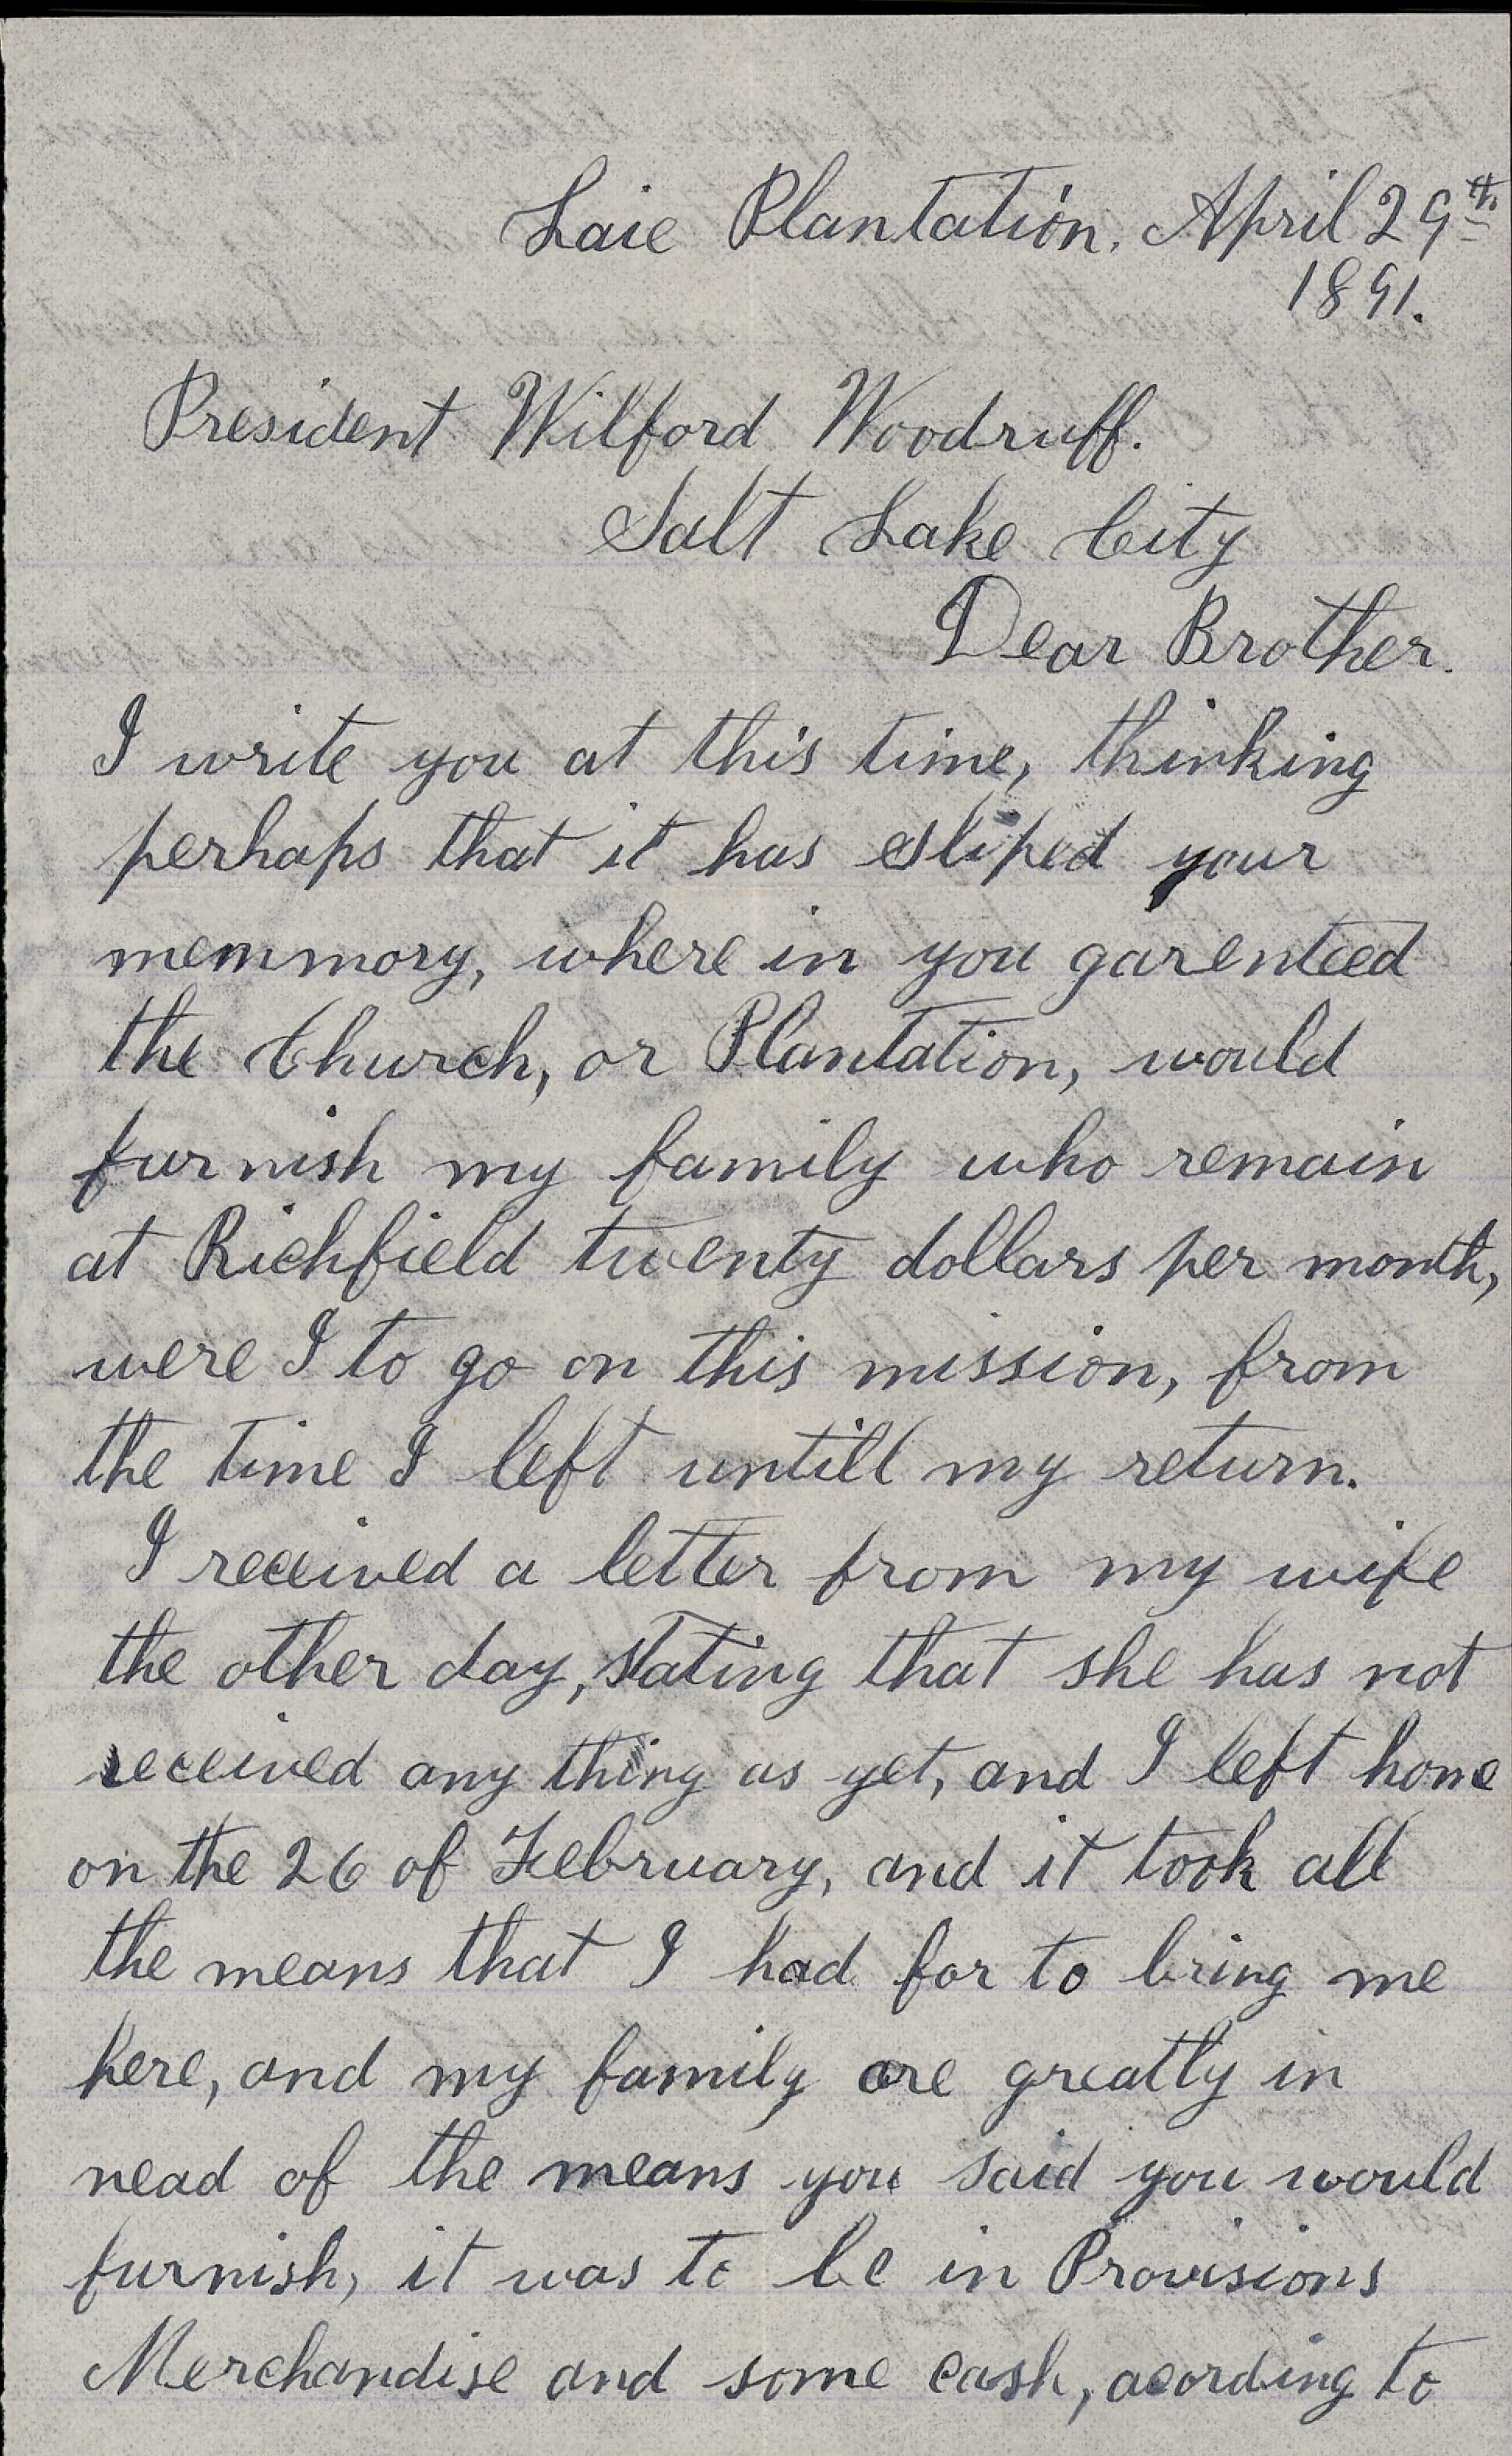 Laie Plantation, April 29th
1891.
President Wilford Woodruff.
Salt Lake City
Dear Brother.
I write you at this time, thinking
perhaps that it has sliped your
memmory, where in you garenteed
the Church, or Plantation, would
furnish my family who remain
at Richfield twenty dollars per month,
were I to go on this mission, from
the time I left untill my return.
I received a letter from my wife
the other day, stating that she has not
received any thing as yet, and I left home
on the 26 of February, and it took all
the means that I had for to bring me
here, and my family are greatly in
nead of the means you said you would
furnish, it was to be in Provisions
Merchandise and some cash, acording to